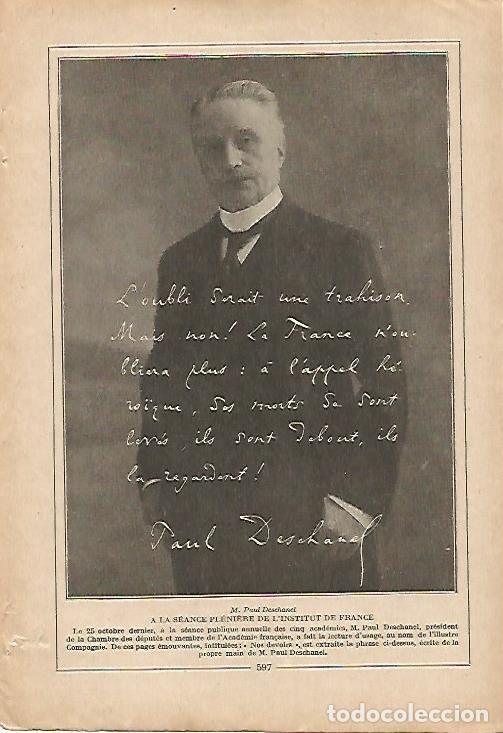 L'oubli serait une trahison.
Mais non! La France n'ou-
bliera plus : à l'appel hé-
roïque, ses morts se sont
levés, ils sont debout, ils
la regardent !
Paul Deschanel
M. Paul Deschanel
A LA SÉANCE PLÉNIÈRE DE L'INSTITUT DE FRANCE
Le 25 octobre dernier, à la séance publique annuelle des cinq académies, M. Paul Deschanel, président
de la Chambre des députés et membre de l'Académie française, a fait la lecture d'usage, au nom de l'illustre
Compagnie. De ces pages émouvantes, intitulées : « Nos devoirs », est extraite la phrase ci-dessus, écrite de la
propre main de M. Paul Deschanel.
597
todocoleccion